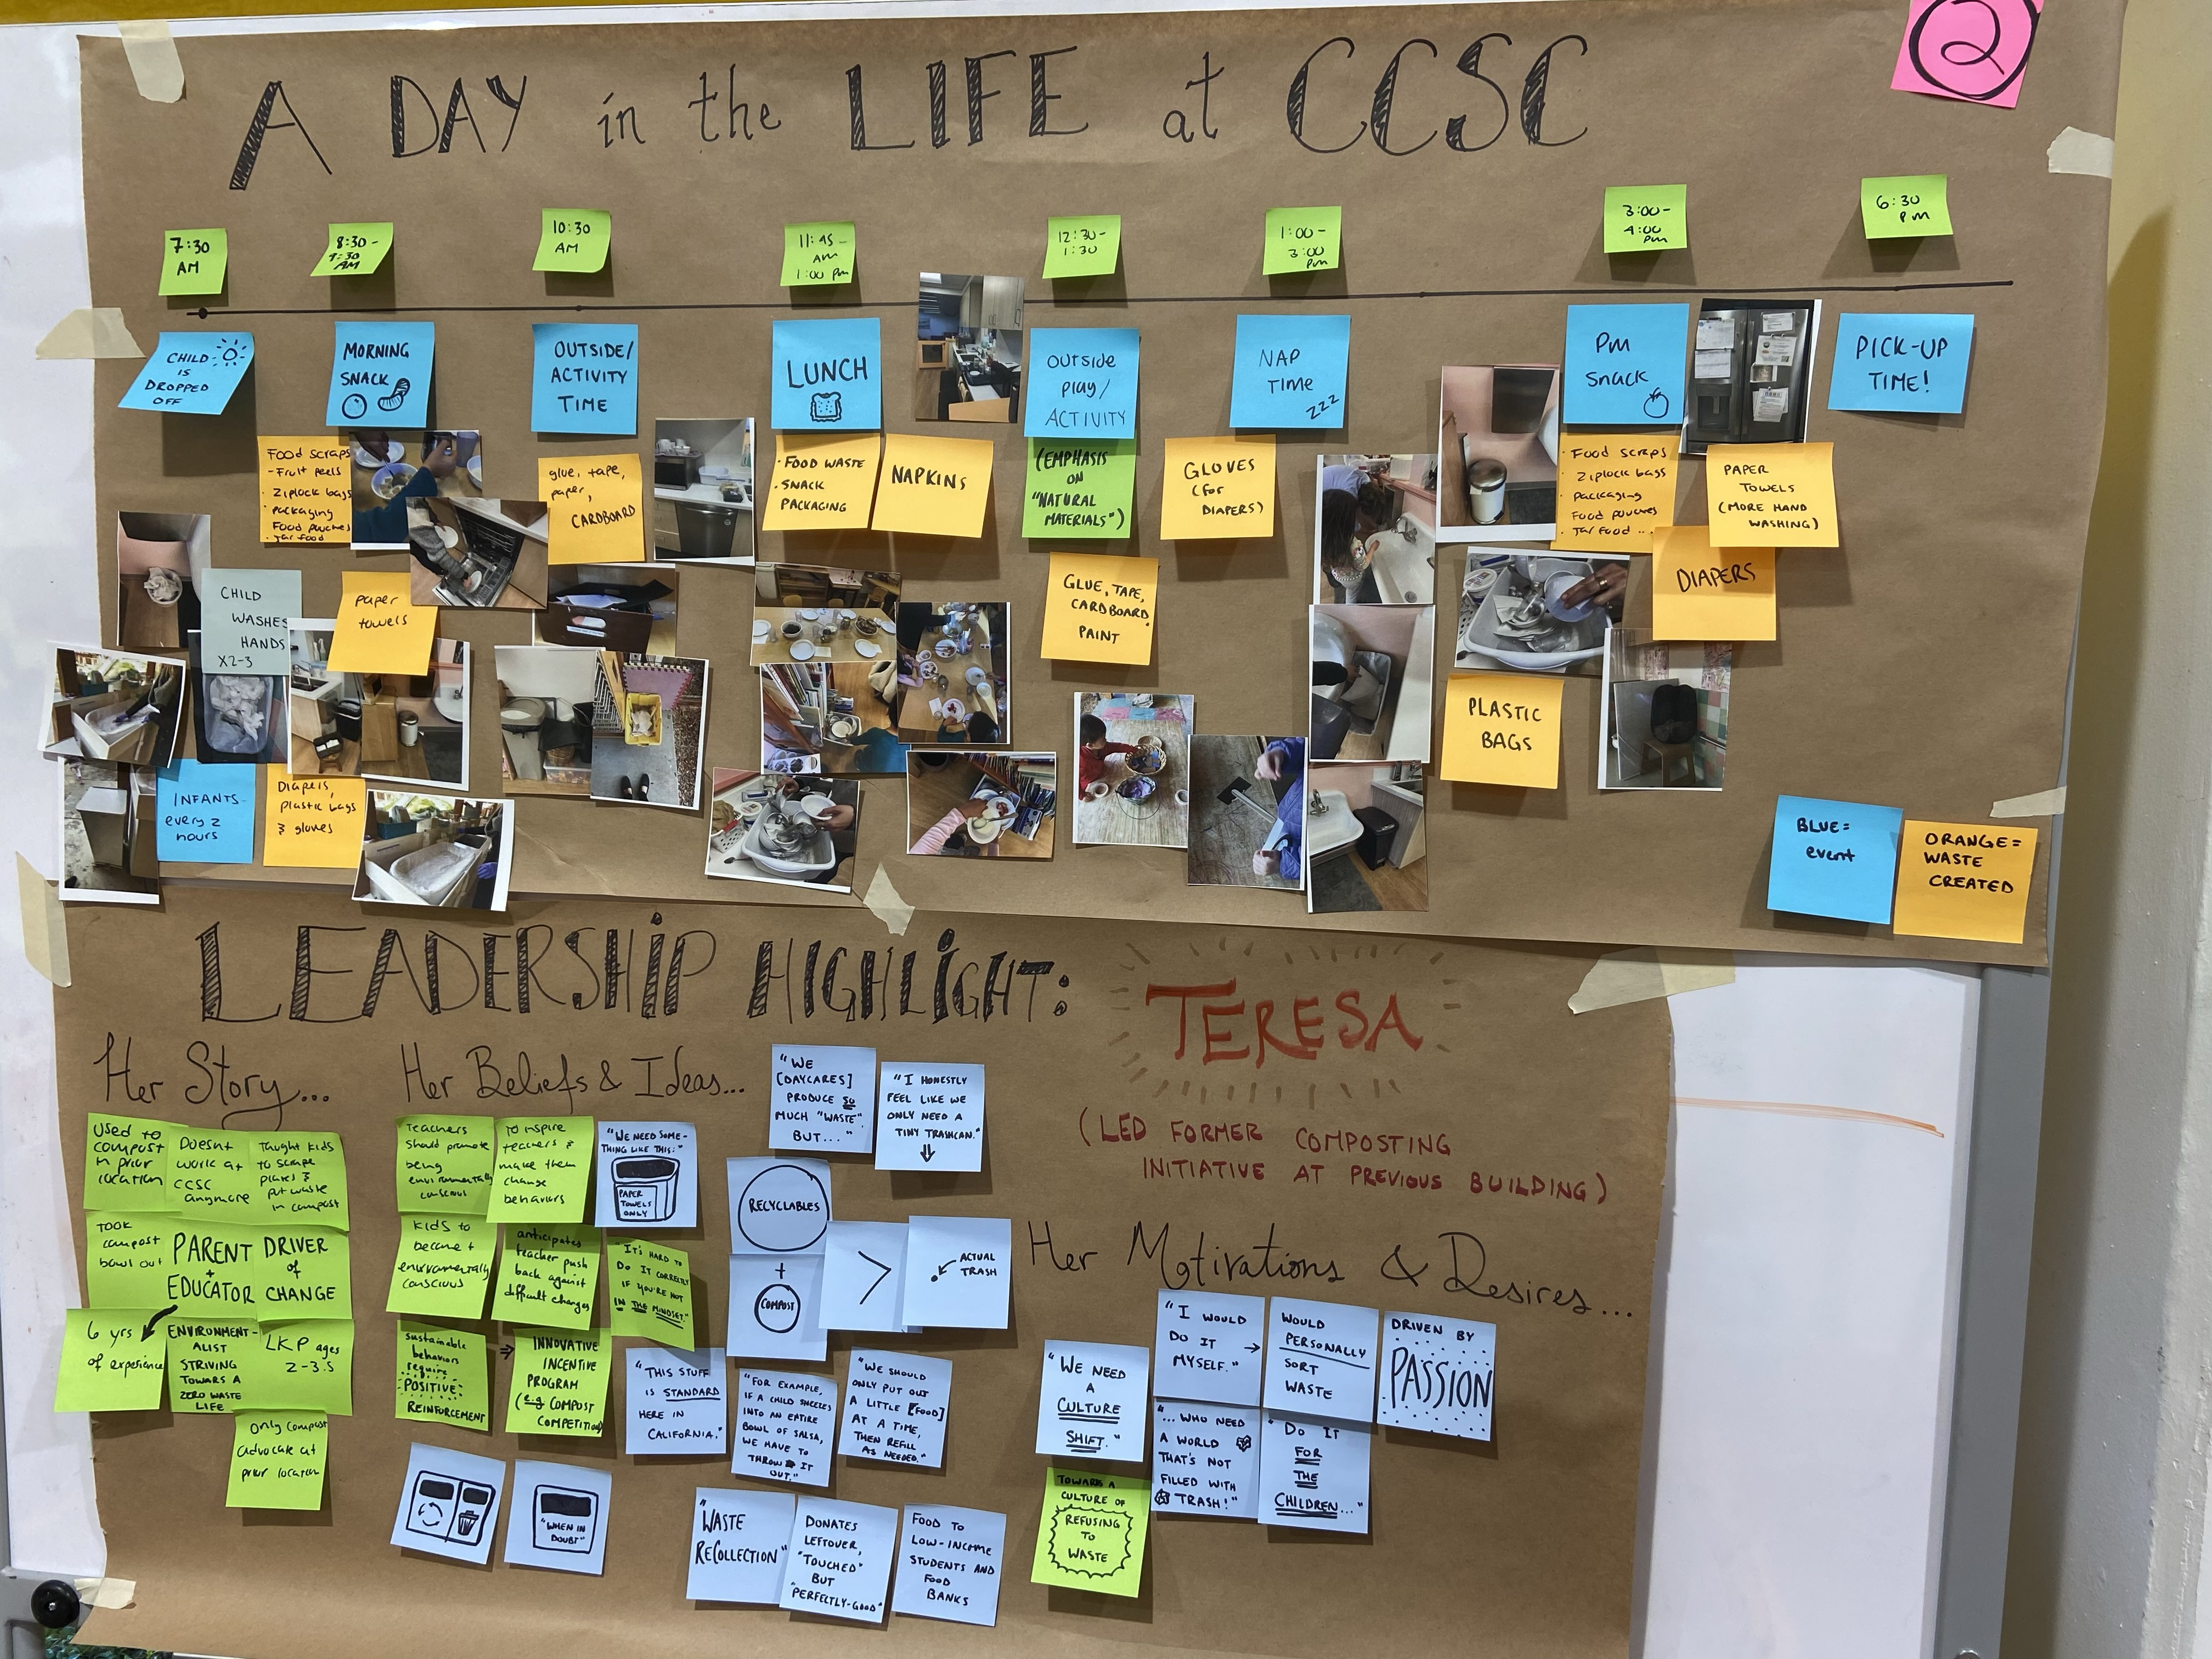 A DAY in the LIFE at CCSC
2
7:30
AM
8:30-
9:30
AM
10:30
AM
11:45-
AM
1:00 pm
12:30-
1:30
1:00-
3:00
pm
3:00-
4:00
pm
6:30
pm
CHILD
IS
DROPPED
OFF
MORNING
SNACK
OUTSIDE/
ACTIVITY
TIME
LUNCH
outside
play/
ACTIVITY
NAP
TIME
zzz
Pm
snack
PICK-UP
TIME!
Food scraps
- Fruit peels
· Ziplock bags
· packaging
Food pouches
· Jar food
glue, tape,
paper,
CARDBOARD
· FOOD WASTE
· SNACK
PACKAGING
NAPKINS
(EMPHASIS
ON
"NATURAL
MATERIALS")
GLOVES
(for
DIAPERS)
· Food scraps
· Ziplock bags
· packaging
Food pouches
· Jar food ...
PAPER
TOWELS
(MORE HAND
WASHING)
DIAPERS
CHILD
WASHES
HANDS
X2-3
paper
towels
GLUE, TAPE,
CARDBOARD,
PAINT
PLASTIC
BAGS
INFANTS-
every 2
hours
Diapers,
plastic bags
& gloves
BLUE=
event
ORANGE=
WASTE
CREATED
LEADERSHIP HIGHLIGHT:
TERESA
(LED FORMER COMPOSTING
INITIATIVE AT PREVIOUS BUILDING)
Her Story...
Used to
compost
in prior
location
Doesnt
work at
CCSC
anymore
Taught kids
to scrape
plates &
put waste
in compost
TOOK
compost
bowl out
PARENT
+
EDUCATOR
DRIVER
of
CHANGE
6 yrs
of experience
ENVIRONMENT-
ALIST
STRIVING
TOWARS A
ZERO WASTE
LIFE
LKP ages
2-3.5
Only compost
advocate at
prior location
Her Beliefs & Ideas...
Teachers
should promote
being
environmentally
conscious
To inspire
teachers &
make them
change
behaviors
"WE NEED SOME-
THING LIKE THIS:"
PAPER
TOWELS
ONLY
kids to
become +
environmentally
conscious
anticipates
teacher push
back against
difficult changes
"IT'S HARD TO
DO IT CORRECTLY
IF YOU'RE NOT
IN THE MINDSET."
sustainable
behaviors
require
POSITIVE
REINFORCEMENT
INNOVATIVE
INCENTIVE
PROGRAM
(e.g COMPOST
COMPETITION)
"WE
[DAYCARES]
PRODUCE SO
MUCH "WASTE".
BUT..."
"I HONESTLY
FEEL LIKE WE
ONLY NEED A
TINY TRASHCAN."
RECYCLABLES
+
COMPOST
>
ACTUAL
TRASH
"THIS STUFF
IS STANDARD
HERE IN
CALIFORNIA."
"FOR EXAMPLE,
IF A CHILD SNEEZES
INTO AN ENTIRE
BOWL OF SALSA,
WE HAVE TO
THROW IT
OUT."
"WE SHOULD
ONLY PUT OUT
A LITTLE [FOOD]
AT A TIME,
THEN REFILL
AS NEEDED."
"WHEN IN
DOUBT"
"WASTE
RECOLLECTION"
DONATES
LEFTOVER,
"TOUCHED"
BUT
"PERFECTLY-GOOD"
FOOD TO
LOW-INCOME
STUDENTS AND
FOOD
BANKS
Her Motivations & Desires...
"WE NEED
A
CULTURE
SHIFT."
TOWARDS A
CULTURE OF
REFUSING
TO
WASTE
"I WOULD
DO IT
MYSELF."
WOULD
PERSONALLY
SORT
WASTE
DRIVEN BY
PASSION
"DO IT
FOR
THE
CHILDREN..."
"... WHO NEED
A WORLD
THAT'S NOT
FILLED WITH
TRASH!"